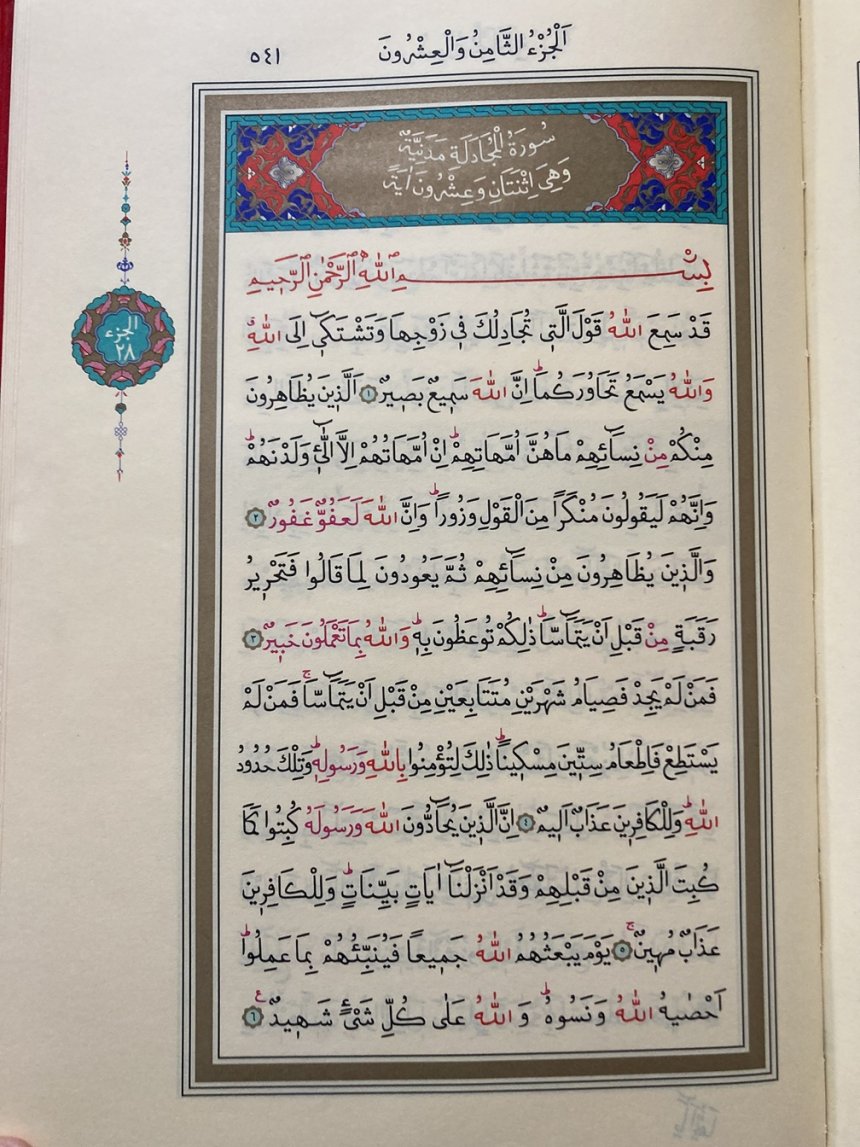 اَلْجُزْءُ الثَّامِنُ وَالْعِشْرُونَ
٥٤١
سُورَةُ الْمُجَادَلَةِ مَدَنِيَّةٌ
وَهِيَ اثْنَتَانِ وَعِشْرُونَ اٰيَةً
الجزء
٢٨
بِسْــــــــمِ اللّٰهِ الرَّحْمٰنِ الرَّحٖيمِ
قَدْ سَمِعَ اللّٰهُ قَوْلَ الَّتٖي تُجَادِلُكَ فٖي زَوْجِهَا وَتَشْتَكٖٓي اِلَى اللّٰهِۗ
وَاللّٰهُ يَسْمَعُ تَحَاوُرَكُمَاۜ اِنَّ اللّٰهَ سَمٖيعٌ بَصٖيرٌ ﴿١﴾ اَلَّذٖينَ يُظَاهِرُونَ
مِنْكُمْ مِنْ نِسَٓائِهِمْ مَا هُنَّ اُمَّهَاتِهِمْۜ اِنْ اُمَّهَاتُهُمْ اِلَّا الّٰٓـٖٔي وَلَدْنَهُمْۜ
وَاِنَّهُمْ لَيَقُولُونَ مُنْكَراً مِنَ الْقَوْلِ وَزُوراًۜ وَاِنَّ اللّٰهَ لَعَفُوٌّ غَفُورٌ ﴿٢﴾
وَالَّذٖينَ يُظَاهِرُونَ مِنْ نِسَٓائِهِمْ ثُمَّ يَعُودُونَ لِمَا قَالُوا فَتَحْرٖيرُ
رَقَبَةٍ مِنْ قَبْلِ اَنْ يَتَمَٓاسَّاۜ ذٰلِكُمْ تُوعَظُونَ بِهٖۜ وَاللّٰهُ بِمَا تَعْمَلُونَ خَبٖيرٌ ﴿٣﴾
فَمَنْ لَمْ يَجِدْ فَصِيَامُ شَهْرَيْنِ مُتَتَابِعَيْنِ مِنْ قَبْلِ اَنْ يَتَمَٓاسَّاۚ فَمَنْ لَمْ
يَسْتَطِعْ فَاِطْعَامُ سِتّٖينَ مِسْكٖيناًۜ ذٰلِكَ لِتُؤْمِنُوا بِاللّٰهِ وَرَسُولِهٖۜ وَتِلْكَ حُدُودُ
اللّٰهِۜ وَلِلْكَافِرٖينَ عَذَابٌ اَلٖيمٌ ﴿٤﴾ اِنَّ الَّذٖينَ يُحَٓادُّونَ اللّٰهَ وَرَسُولَهُ كُبِتُوا كَمَا
كُبِتَ الَّذٖينَ مِنْ قَبْلِهِمْ وَقَدْ اَنْزَلْنَٓا اٰيَاتٍ بَيِّنَاتٍۜ وَلِلْكَافِرٖينَ
عَذَابٌ مُهٖينٌۚ ﴿٥﴾ يَوْمَ يَبْعَثُهُمُ اللّٰهُ جَمٖيعاً فَيُنَبِّئُهُمْ بِمَا عَمِلُواۜ
اَحْصٰيهُ اللّٰهُ وَنَسُوهُۜ وَاللّٰهُ عَلٰى كُلِّ شَيْءٍ شَهٖيدٌ ﴿٦﴾